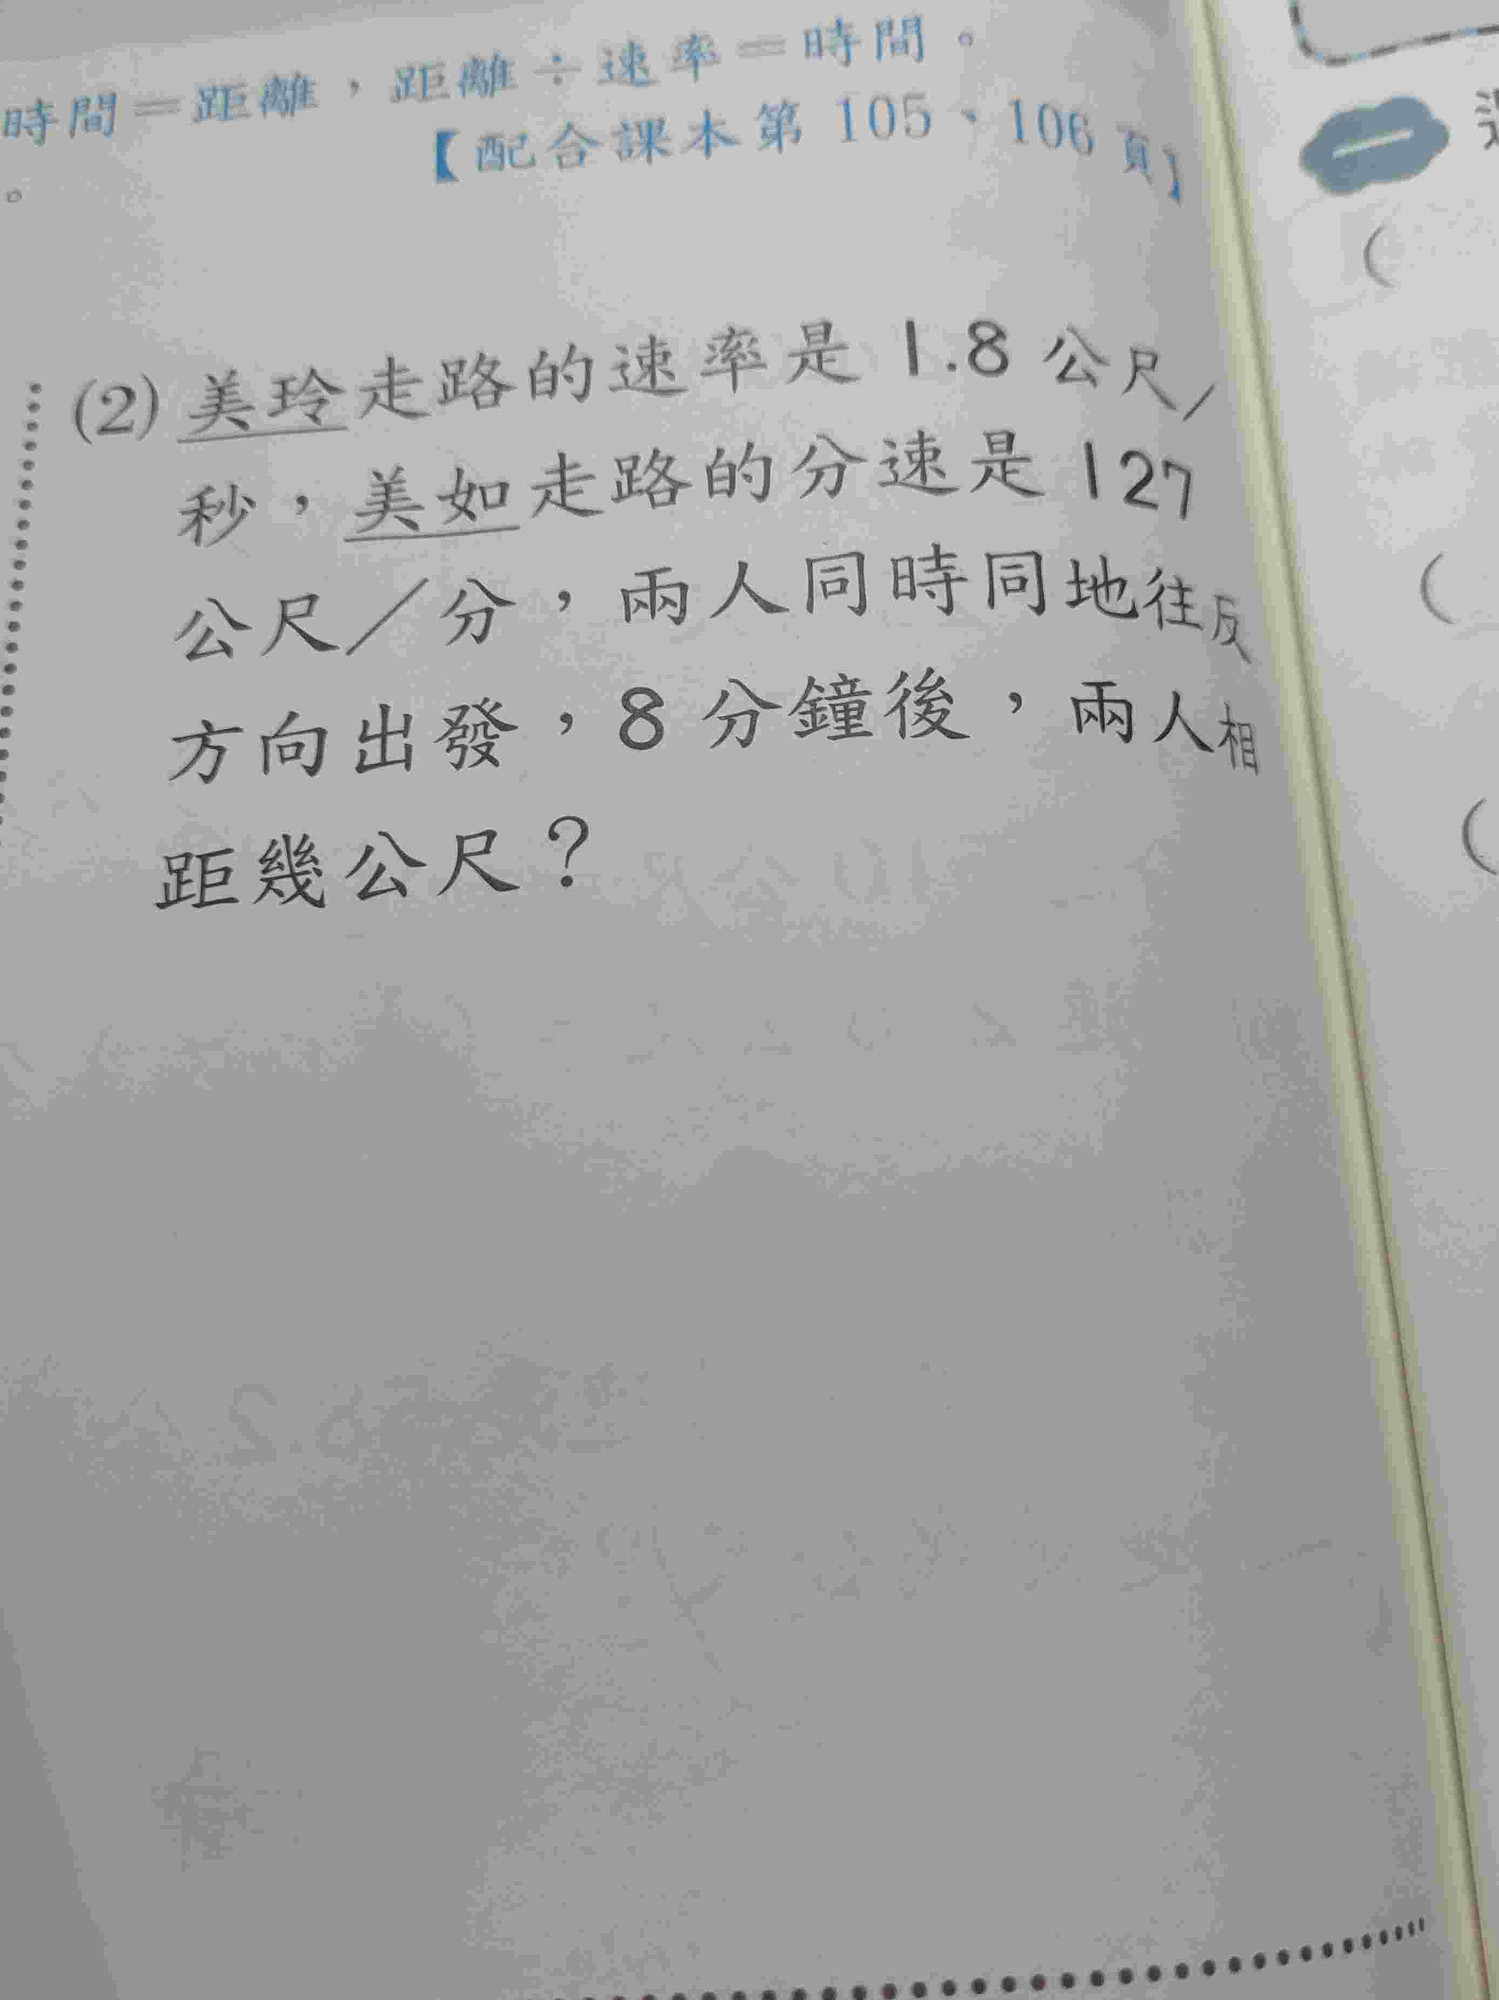 時間＝距離，距離÷速率＝時間。
【配合課本第 105、106 頁】
。
(2) 美玲走路的速率是 1.8 公尺／
秒，美如走路的分速是 127
公尺／分，兩人同時同地往反
方向出發，8 分鐘後，兩人相
距幾公尺？
一
(
(
(